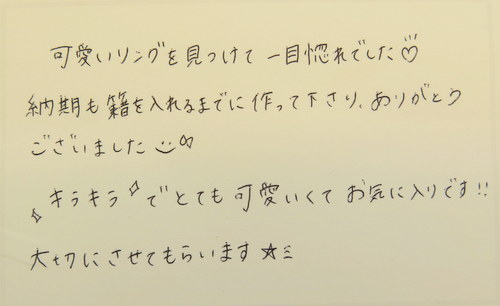 可愛いリングを見つけて一目惚れでした♡
納期も籍を入れるまでに作って下さり、ありがとう
ございました
キラキラでとても可愛いくてお気に入りです!!
大切にさせてもらいます★ミ